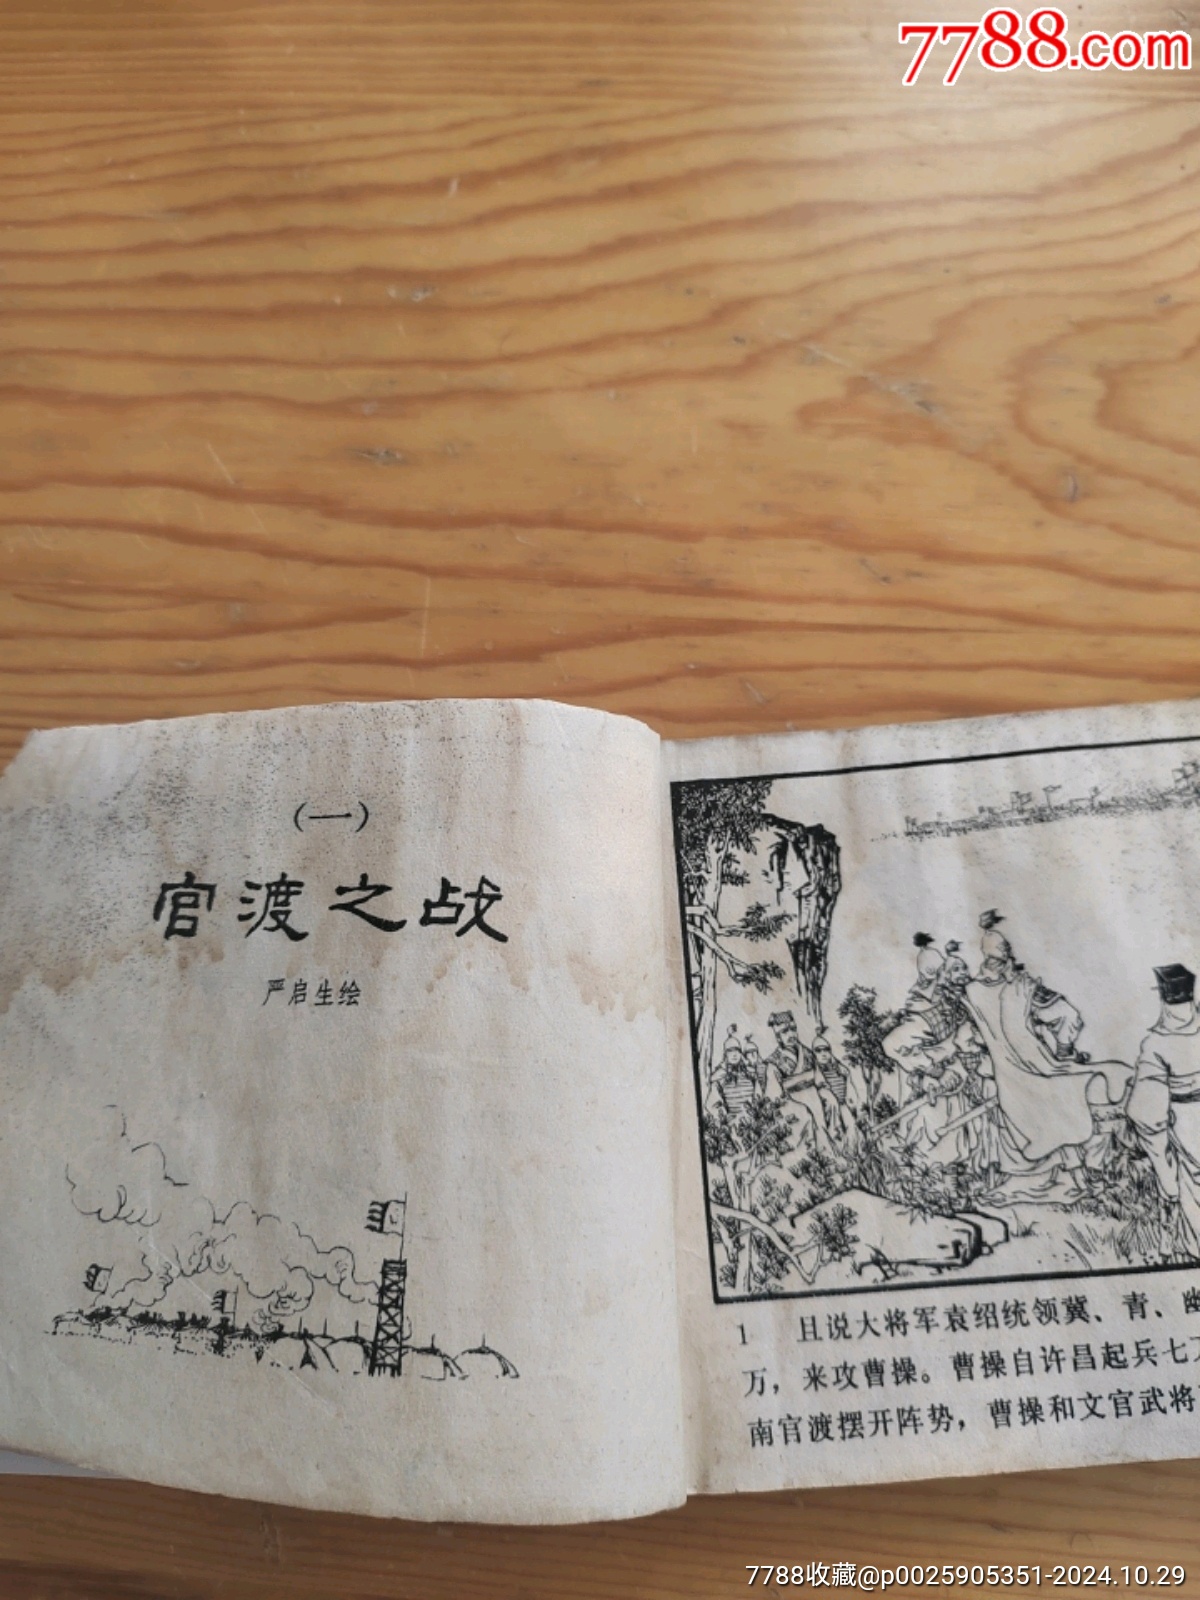 7788.com
（一）
官渡之战
严启生绘
1 且说大将军袁绍统领冀、青、幽
万，来攻曹操。曹操自许昌起兵七万
南官渡摆开阵势，曹操和文官武将
7788收藏@p0025905351-2024.10.29